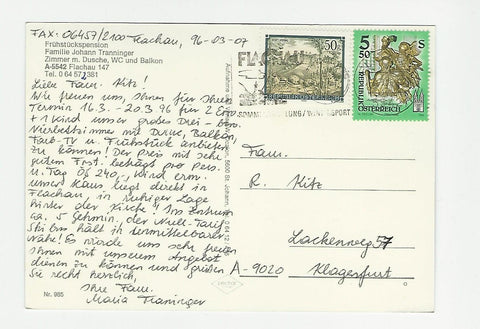 FAX: 06457/2100 Flachau, 96-03-07
Frühstückspension
Familie Johann Tranninger
Zimmer m. Dusche, WC und Balkon
A-5542 Flachau 147
Tel. 0 64 57 / 381
Liebe Fam. Kitz!
Wir freuen uns, Ihnen für Ihren
Termin 16.3. - 20.3.96 für 2 Erw.
+ 1 Kind unser großes Drei- bzw.
Vierbettzimmer mit Dusche, Balkon,
Farb-TV u. Frühstück anbieten
zu können! Der Preis mit sehr
gutem Frst. beträgt pro Pers.
u. Tag ÖS 240,-, Kind erm.
Unser Haus liegt direkt in
Flachau, in ruhiger Lage
hinter der Kirche! Ins Zentrum
ca. 5 Gehmin., der Null-Tarif-
Skibus hält in unmittelbarer
Nähe! Es würde uns sehr freuen
Ihnen mit unserem Angebot
dienen zu können und grüßen
Sie recht herzlich,
Ihre Fam.
Maria Tranninger
Nr. 985
FLACHAU
50
REPUBLIK ÖSTERREICH
5 50
S
REPUBLIK ÖSTERREICH
Fam.
R. Kitz
Lackenweg 57
A-9020 Klagenfurt